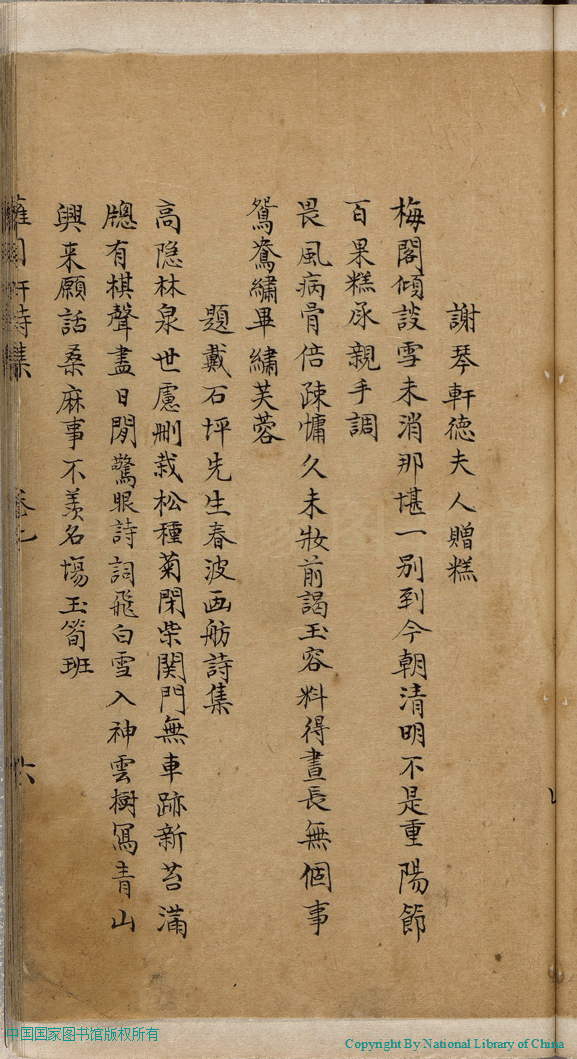 謝琴軒德夫人贈糕
梅閣傾談雪未消那堪一別到今朝清明不是重陽節
百果糕承親手調
畏風病骨倍疎慵久未妝前謁玉容料得晝長無個事
鴛鴦繡畢繡芙蓉
題戴石坪先生春波画舫詩集
高隐林泉世慮刪栽松種菊閉柴関門無車跡新苔滿
牕有棋聲盡日閒驚眼詩詞飛白雪入神雲樹冩青山
興来願話桑麻事不羨名塲玉筍班
詩集
六
中国国家图书馆版权所有
Copyright By National Library of China